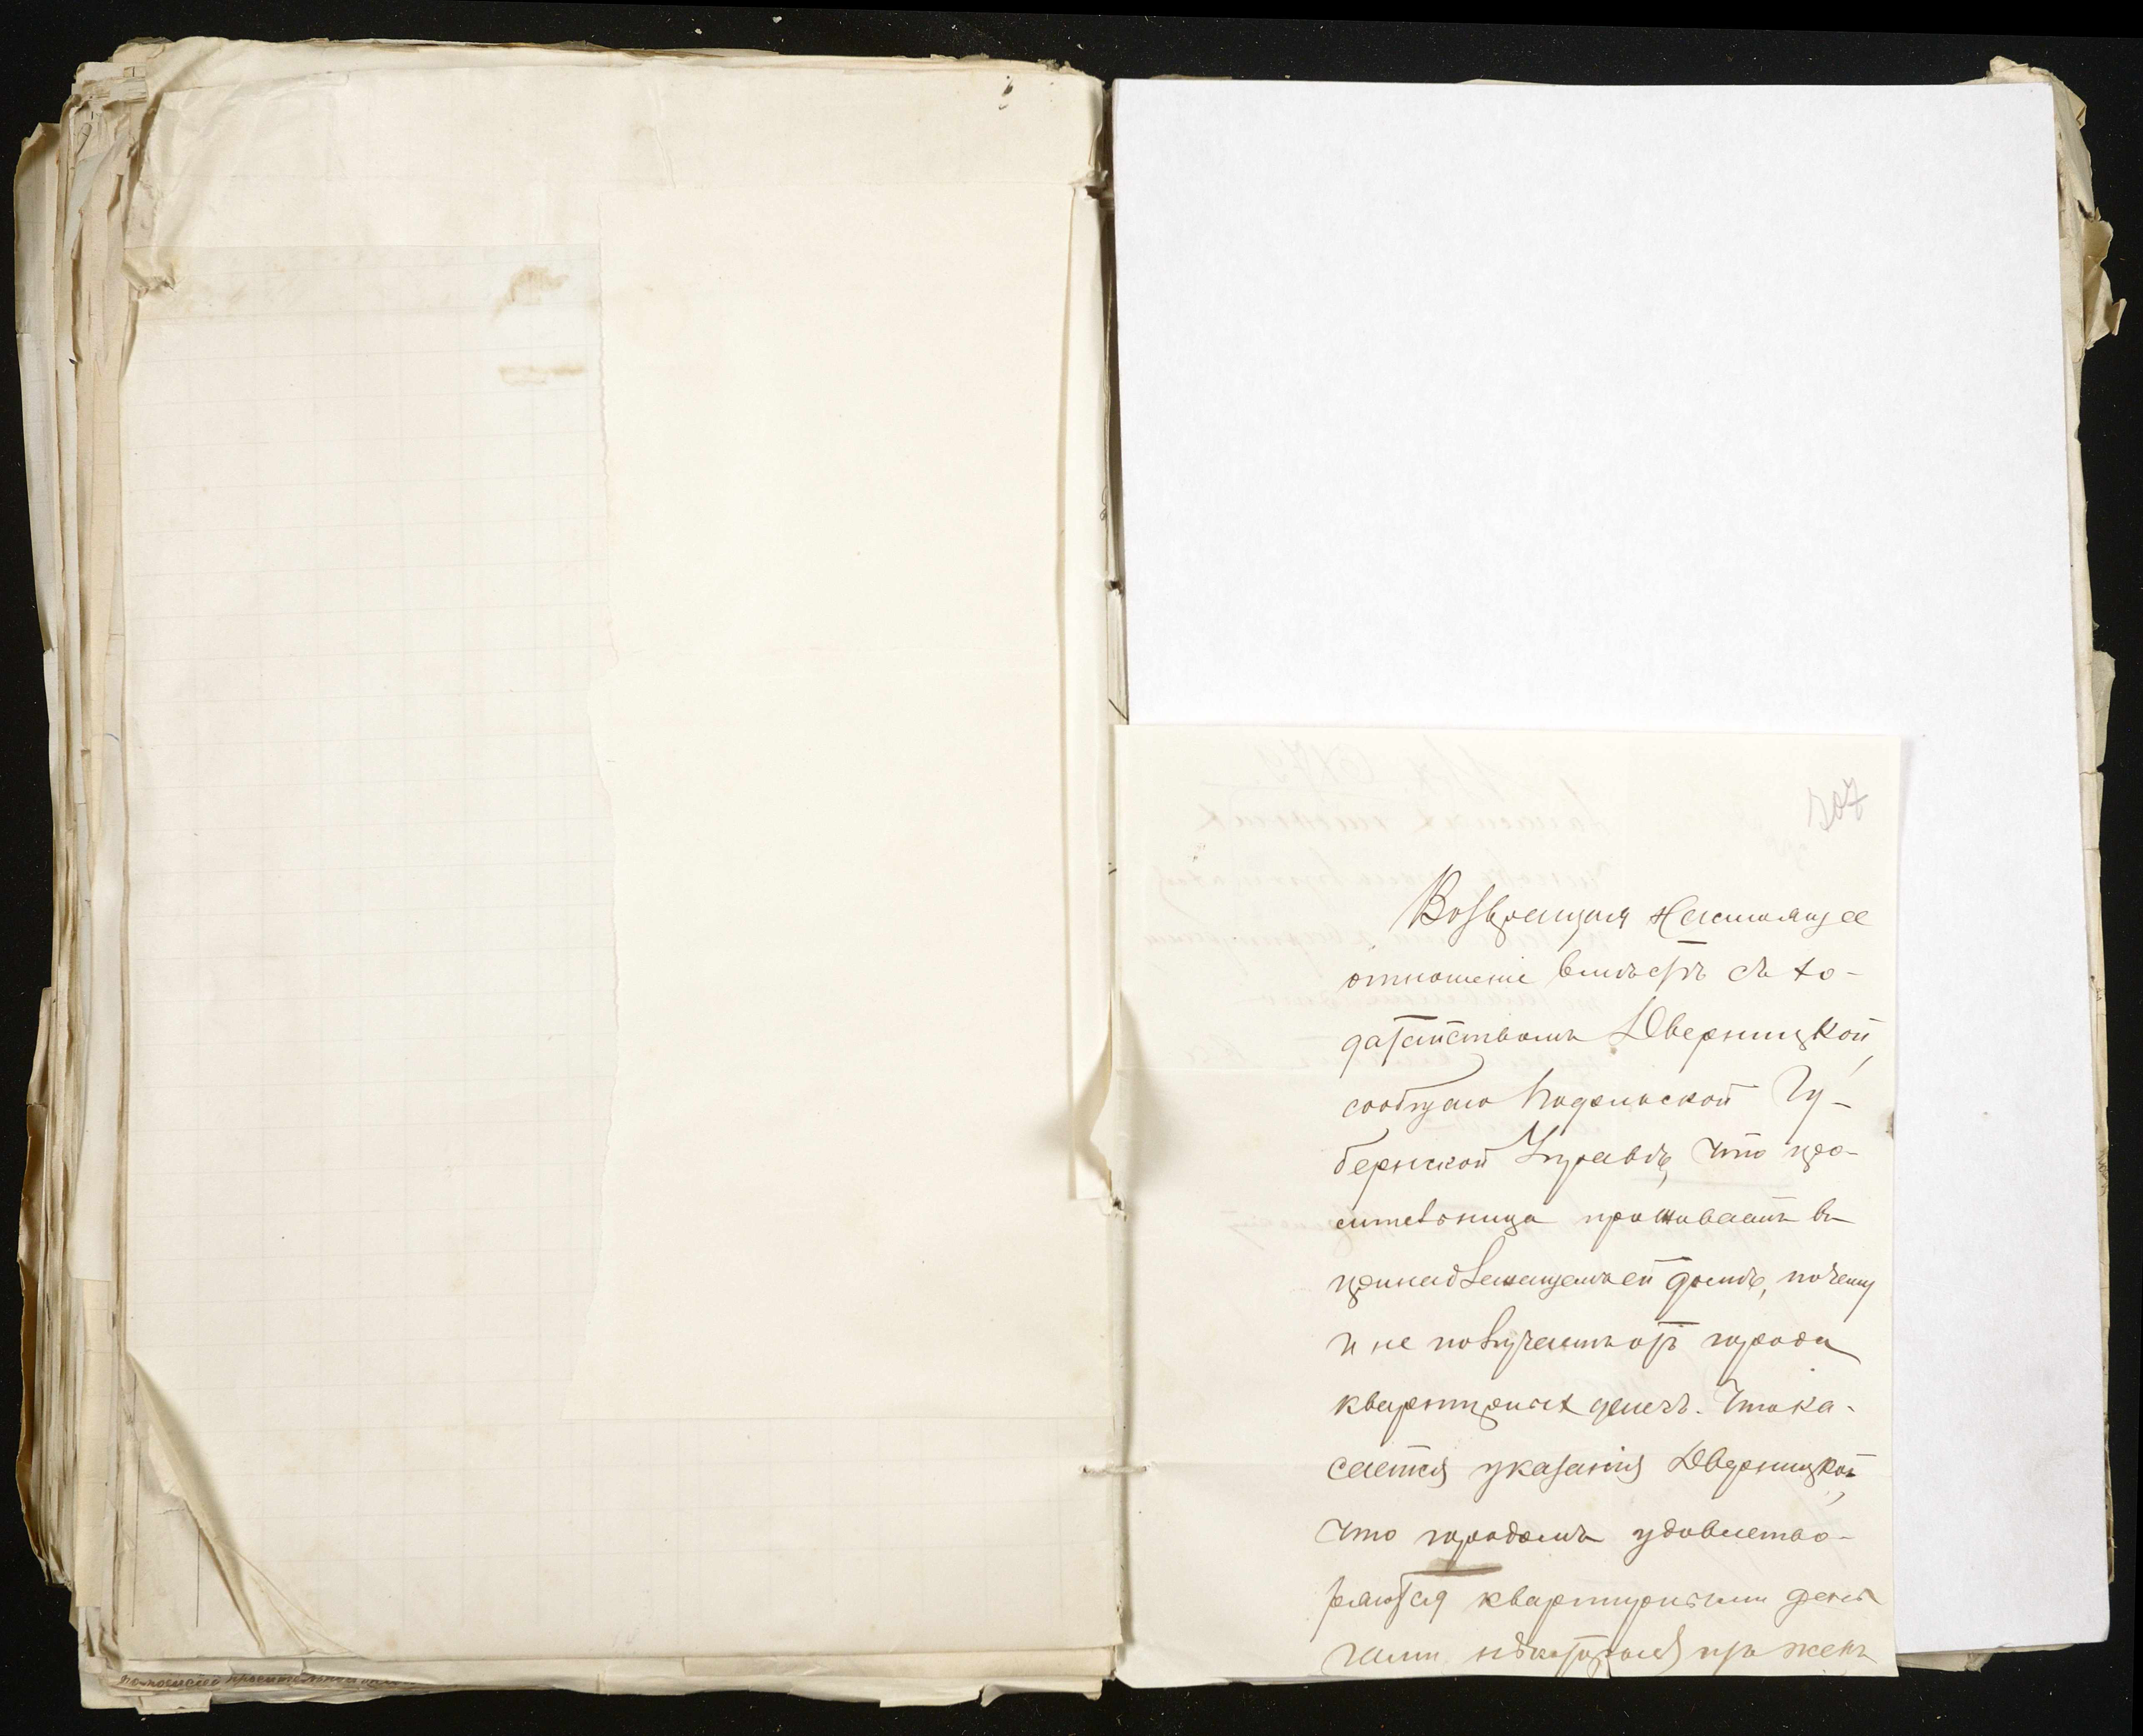 307
Возвращая настоящее
отношеніе вмѣстѣ съ хо-
датайствомъ Дверницкой,
сообщаю Подольской Гу-
бернской Управѣ, что про-
сительница проживаетъ въ
принадлежащемъ ей домѣ, почему
и не получаетъ отъ города
квартирныхъ денегъ. Что ка-
сается указанія Дверницкой,
что городомъ удовлетво-
ряются квартирными день
гами нѣкоторыя изъ женъ